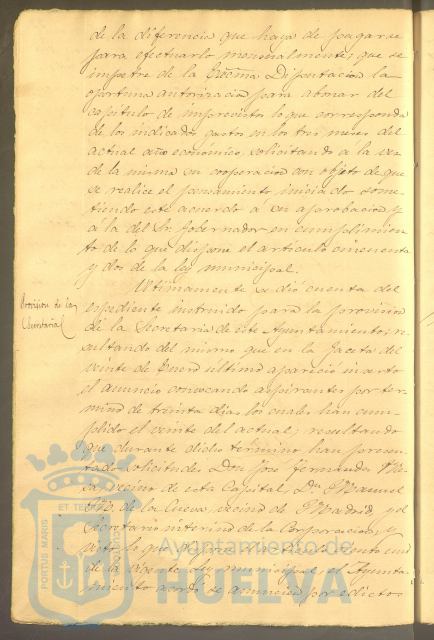 de la diferencia que haya de pagarse
para efectuarlo mensualmente; que se
impetre de la Excma Diputacion la
oportuna autorizacion para abonar del
capitulo de imprevistos lo que corresponda
de los indicados gastos en los tres meses del
actual año economico, solicitando á la vez
de la misma su cooperacion con objeto de que
se realice el pensamiento iniciado some-
tiendo este acuerdo á su aprobacion y
á la del Sr. Gobernador en cumplimien-
to de lo que dispone el articulo cincuenta
y dos de la ley municipal.
Provision de la
Secretaria
Ultimamente se dió cuenta del
espediente instruido para la provision
de la Secretaria de este Ayuntamiento, re-
sultando del mismo que en la Gaceta del
veinte de Enero ultimo aparecio inserto
el anuncio convocando aspirantes por ter-
mino de treinta dias los cuales han cum-
plido el veinte del actual; resultando
que durante dicho termino han presen-
tado solicitudes Don José Fernandez
vecino de esta Capital, Dn Manuel
de la Cueva, vecino de Madrid y el
Secretario interino de la Corporacion, y
visto lo que dispone el articulo
de la vigente Ley municipal, el Ayunta-
miento acordó se anuncien por edictos
PORTUS MARIS
ET TERRAE
CUSTODIA
Ayuntamiento de
HUELVA